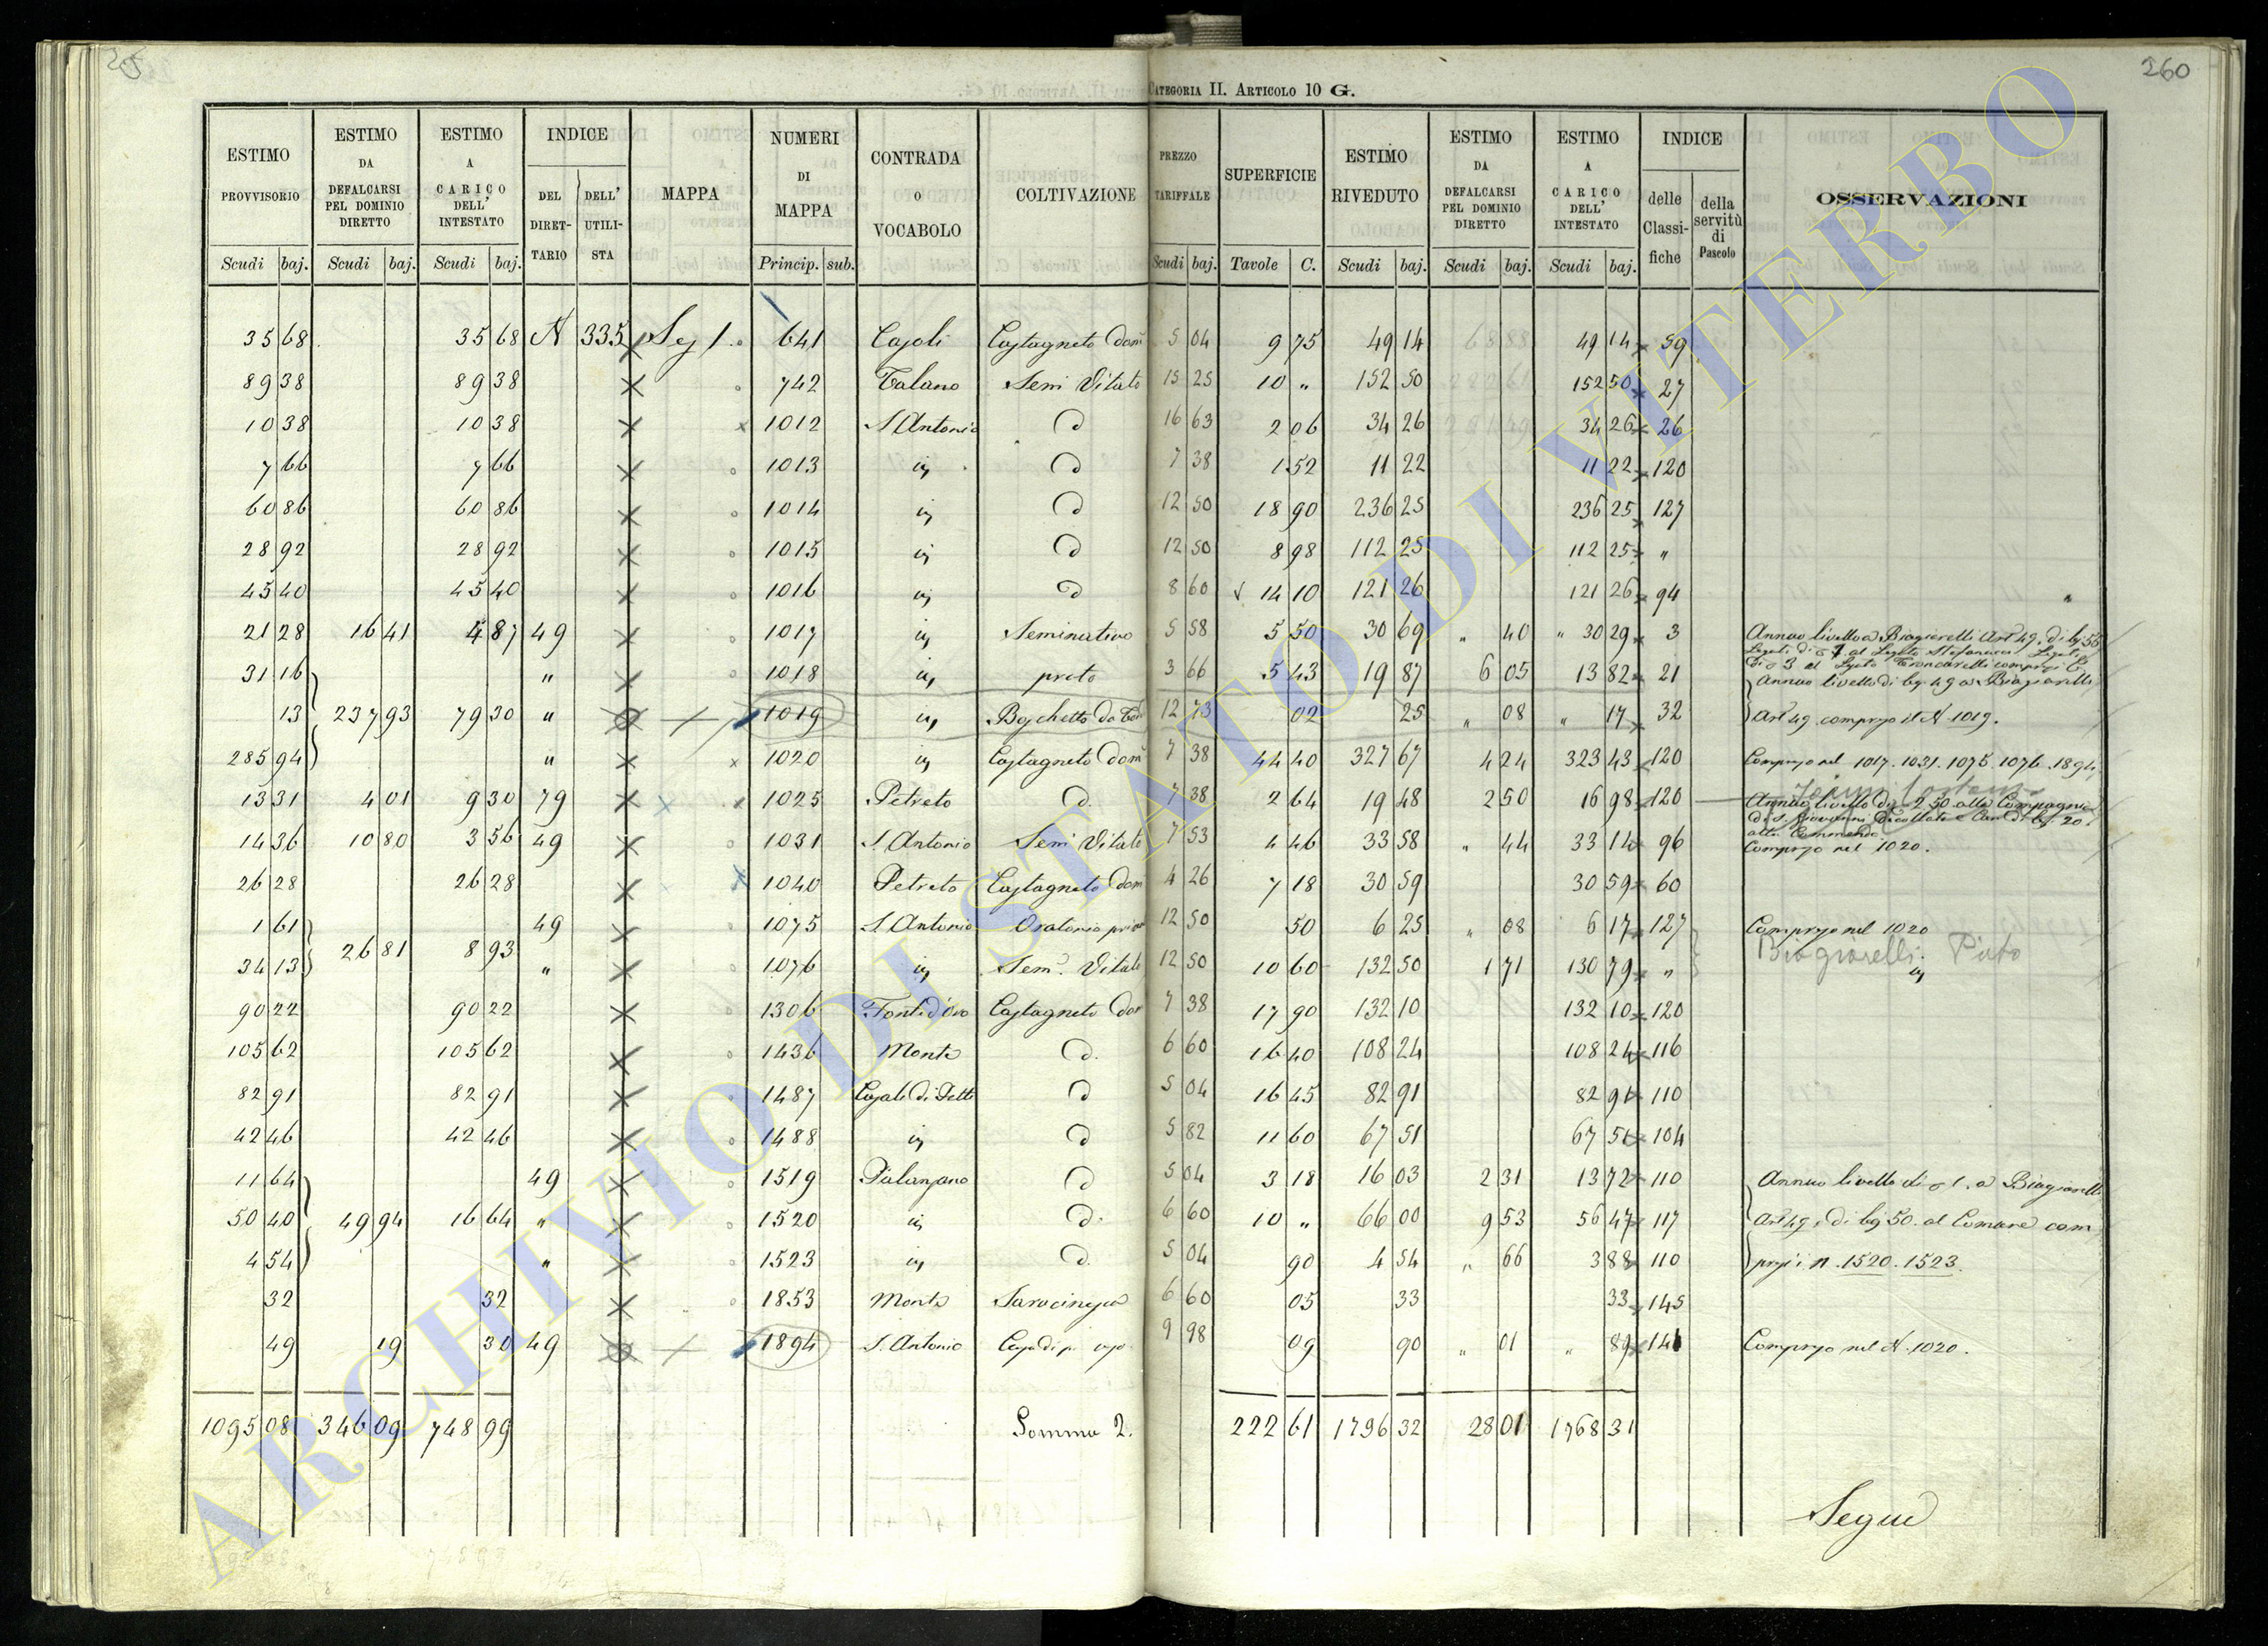 260
CATEGORIA II. ARTICOLO 10 G.
ESTIMO PROVVISORIO Scudi baj. | ESTIMO DA DEFALCARSI PEL DOMINIO DIRETTO Scudi baj. | ESTIMO A CARICO DELL' INTESTATO Scudi baj. | INDICE DEL DIRET-TARIO | DELL' UTILI-STA | MAPPA | NUMERI DI MAPPA Princip. sub. | CONTRADA O VOCABOLO | COLTIVAZIONE | PREZZO TARIFFALE Scudi baj. | SUPERFICIE Tavole C. | ESTIMO RIVEDUTO Scudi baj. | ESTIMO DA DEFALCARSI PEL DOMINIO DIRETTO Scudi baj. | ESTIMO A CARICO DELL' INTESTATO Scudi baj. | INDICE delle Classi-fiche | della servitù di Pascolo | OSSERVAZIONI
35 68 35 68 N 335 Sez 1 641 Castagneto 5 04 9 75 49 14 49 14 59
89 38 89 38 742 Talano Semi Vitato 15 25 10 " 152 50 152 50 27
10 38 10 38 1012 S Antonio d 16 63 2 06 34 26 34 26 26
7 66 7 66 1013 d 7 38 1 52 11 22 11 22 120
60 86 60 86 1014 d 12 50 18 90 236 25 236 25 127
28 92 28 92 1015 d 12 50 8 98 112 25 112 25 "
45 40 45 40 1016 d 8 60 14 10 121 26 121 26 94
21 28 16 41 4 87 49 1017 Seminativo 5 58 5 50 30 69 " 40 " 30 29 3 Annuo livello a Biagiarelli Art 49. di bj 55
31 16 " 1018 prato 3 66 5 43 19 87 6 05 13 82 21 Annuo livello di bj. 49 a Biagiarelli
13 237 93 79 30 " 1019 Boschetto 12 73 02 25 " 08 " 17 32 Art 49 compreso il N. 1019.
285 94 " 1020 Castagneto 7 38 44 40 327 67 4 24 323 43 120 Compreso nel 1017. 1031. 1075. 1076. 1894.
13 31 4 01 9 30 79 1025 Petreto d. 7 38 2 64 19 48 2 50 16 98 120 Annuo livello di 2 50 alla Compagnia
di S. Giovanni Decollato
alla Commenda
14 36 10 80 3 56 49 1031 S. Antonio Semi Vitato 7 53 4 46 33 58 " 44 33 14 96 Compreso nel 1020.
26 28 26 28 1040 Petreto Castagneto 4 26 7 18 30 59 30 59 60
1 61 49 1075 S. Antonio Oratorio 12 50 50 6 25 " 08 6 17 127 Compreso nel 1020
26 81 8 93 Biagiarelli
34 13 " 1076 Sem. Vitato 12 50 10 60 132 50 1 71 130 79 "
90 22 90 22 1306 Castagneto 7 38 17 90 132 10 132 10 120
105 62 105 62 1436 Monte d. 6 60 16 40 108 24 108 24 116
82 91 82 91 1487 d 5 04 16 45 82 91 82 91 110
42 46 42 46 1488 d 5 82 11 60 67 51 67 51 104
11 64 49 1519 Palanzano d 5 04 3 18 16 03 2 31 13 72 110 Annuo livello di 1. a Biagiarelli
50 40 49 94 16 64 " 1520 d. 6 60 10 " 66 00 9 53 56 47 117 Art 49, di bj 50. al Comune com
4 54 " 1523 d. 5 04 90 4 54 " 66 3 88 110 presi i n. 1520. 1523.
32 32 1853 Monte 6 60 05 33 33 145
49 19 30 49 1894 S. Antonio 9 98 09 90 " 01 " 89 141 Compreso nel N. 1020.
1095 08 346 09 748 99 Somma 2. 222 61 1796 32 28 01 1768 31
Segue
ARCHIVIO DI STATO DI VITERBO